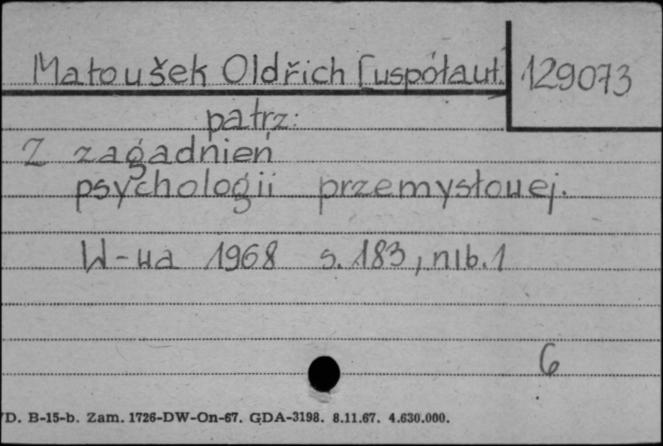 Matoušek Oldřich [współaut.] 129073
patrz:
Z zagadnień
psychologii przemysłowej.
W-wa 1968 s. 183, nlb. 1
6
D. B-15-b. Zam. 1726-DW-On-67. GDA-3198. 8.11.67. 4.630.000.